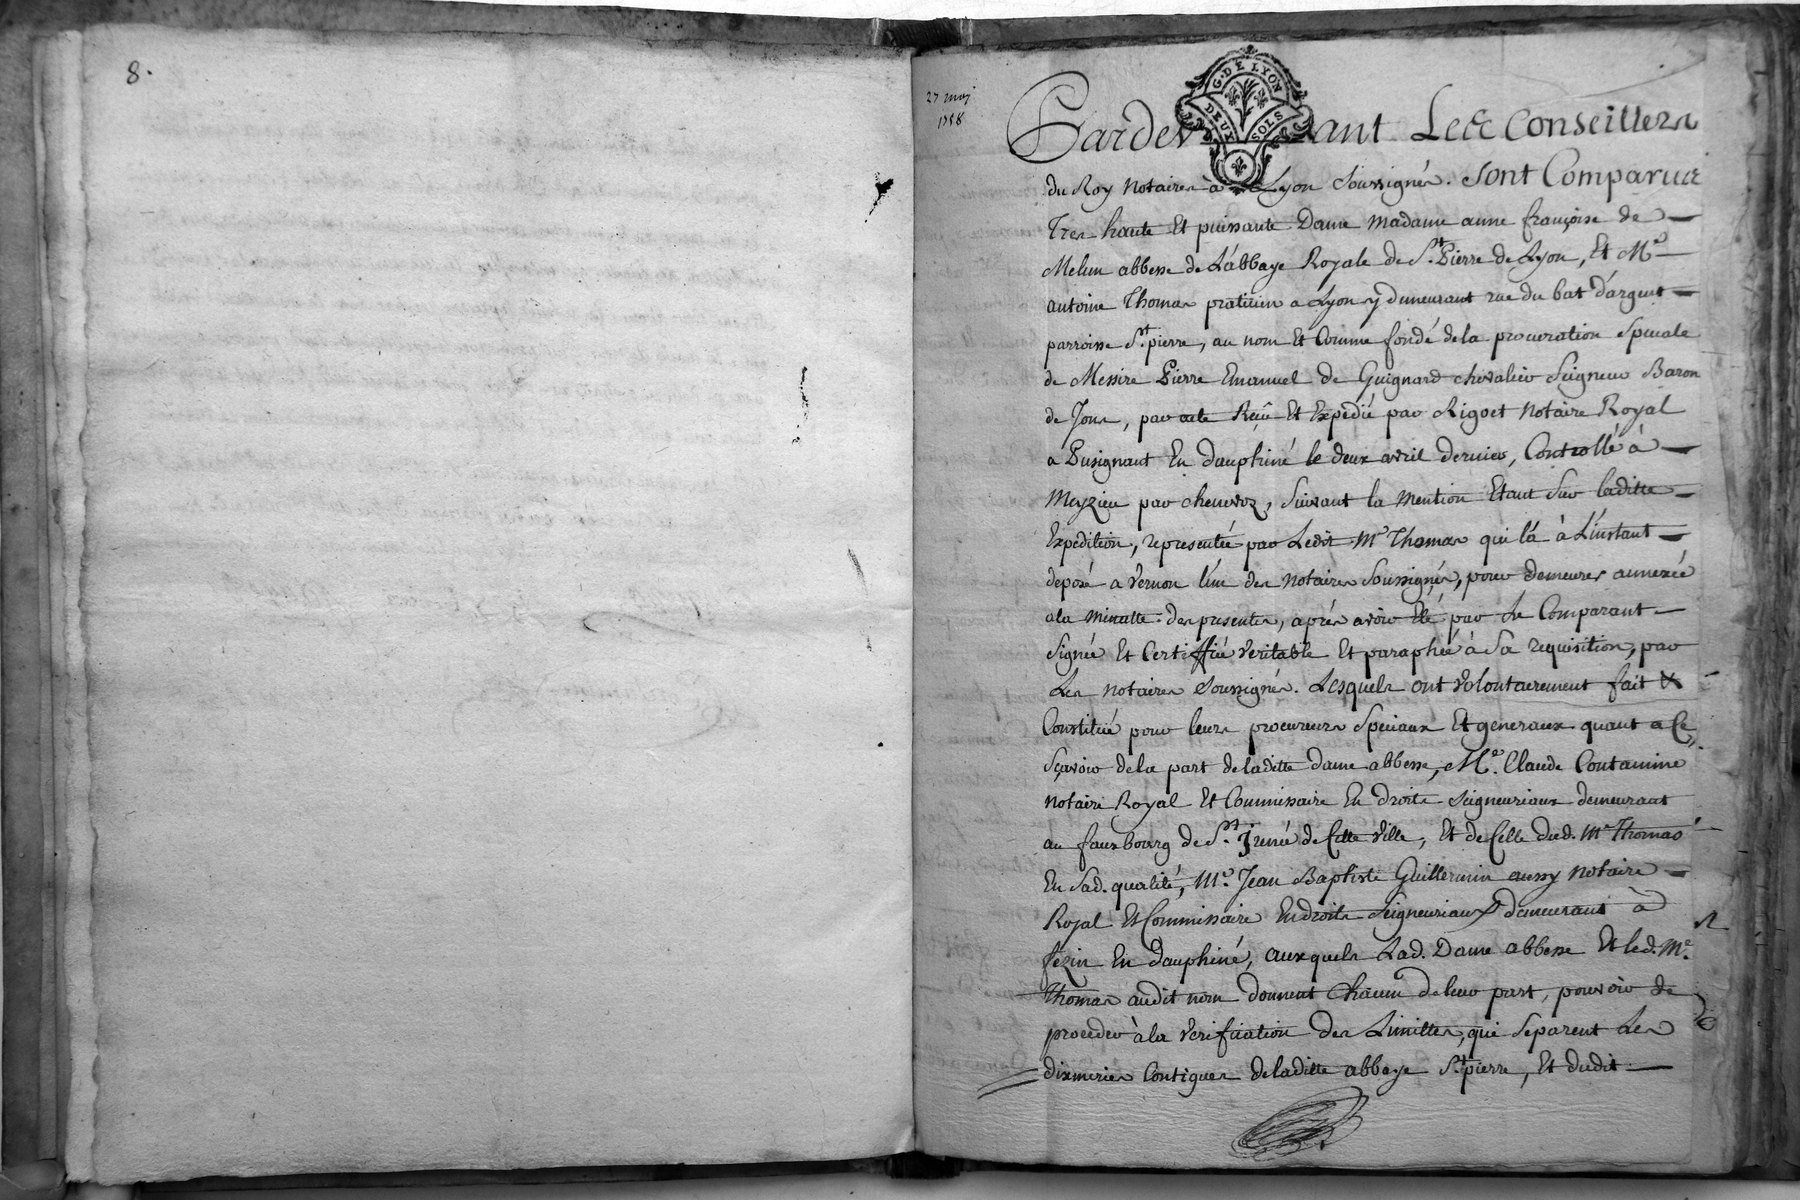 8.
27 may
1758
G. DE LYON
DEUX SOLS
Pardevant Les Conseillers
du Roy Notaires à Lyon Soussignés. Sont Comparus
Tres haute Et puissante Dame Madame anne françoise de
Melun abbesse de L'abbaye Royale de St. Pierre de Lyon, Et Me
antoine Thomas praticien a Lyon y demeurant rue du bat d'argent
parroisse St. pierre, au nom Et Comme fondé de la procuration speciale
de Messire Pierre Emanuel de Guignard chevalier Seigneur Baron
de Jons, par acte Reçu Et Expedié par Rigoet Notaire Royal
a Pusignant En dauphiné le deux avril dernier, Controllé à
Meyzieu par chenevoz, suivant la Mention Etant sur laditte
Expedition, representée par Ledit Me Thomas qui l'a à L'instant
deposé a Vernon l'un des Notaires Soussignés, pour demeurer annexée
a la Minutte des presentes, après avoir Eté par Le Comparant
Signée Et Certiffiée Veritable Et paraphée à Sa requisition, par
Les Notaires Soussignés. Lesquels ont Volontairement fait &
Constitué pour leurs procureurs Speciaux Et generaux quant a Ce
Sçavoir de la part de laditte dame abbesse, Me. Claude Contamine
Notaire Royal Et Commissaire En droits Seigneuriaux demeurant
au fauxbourg de St. Jrenée de Cette Ville, Et de Celle dud. Me Thomas
En Sad. qualité, Me. Jean Baptiste Guillermin aussy Notaire
Royal Et Commissaire En droits Seigneuriaux demeurant à
fezin En Dauphiné, auxquels Lad. Dame abbesse Et led. Me.
Thomas audit nom donnent Chacun de leur part, pouvoir de
proceder à la Verification des Limittes, qui Separent Les
dixmeries Contigues de laditte abbaye St. pierre, Et dudit